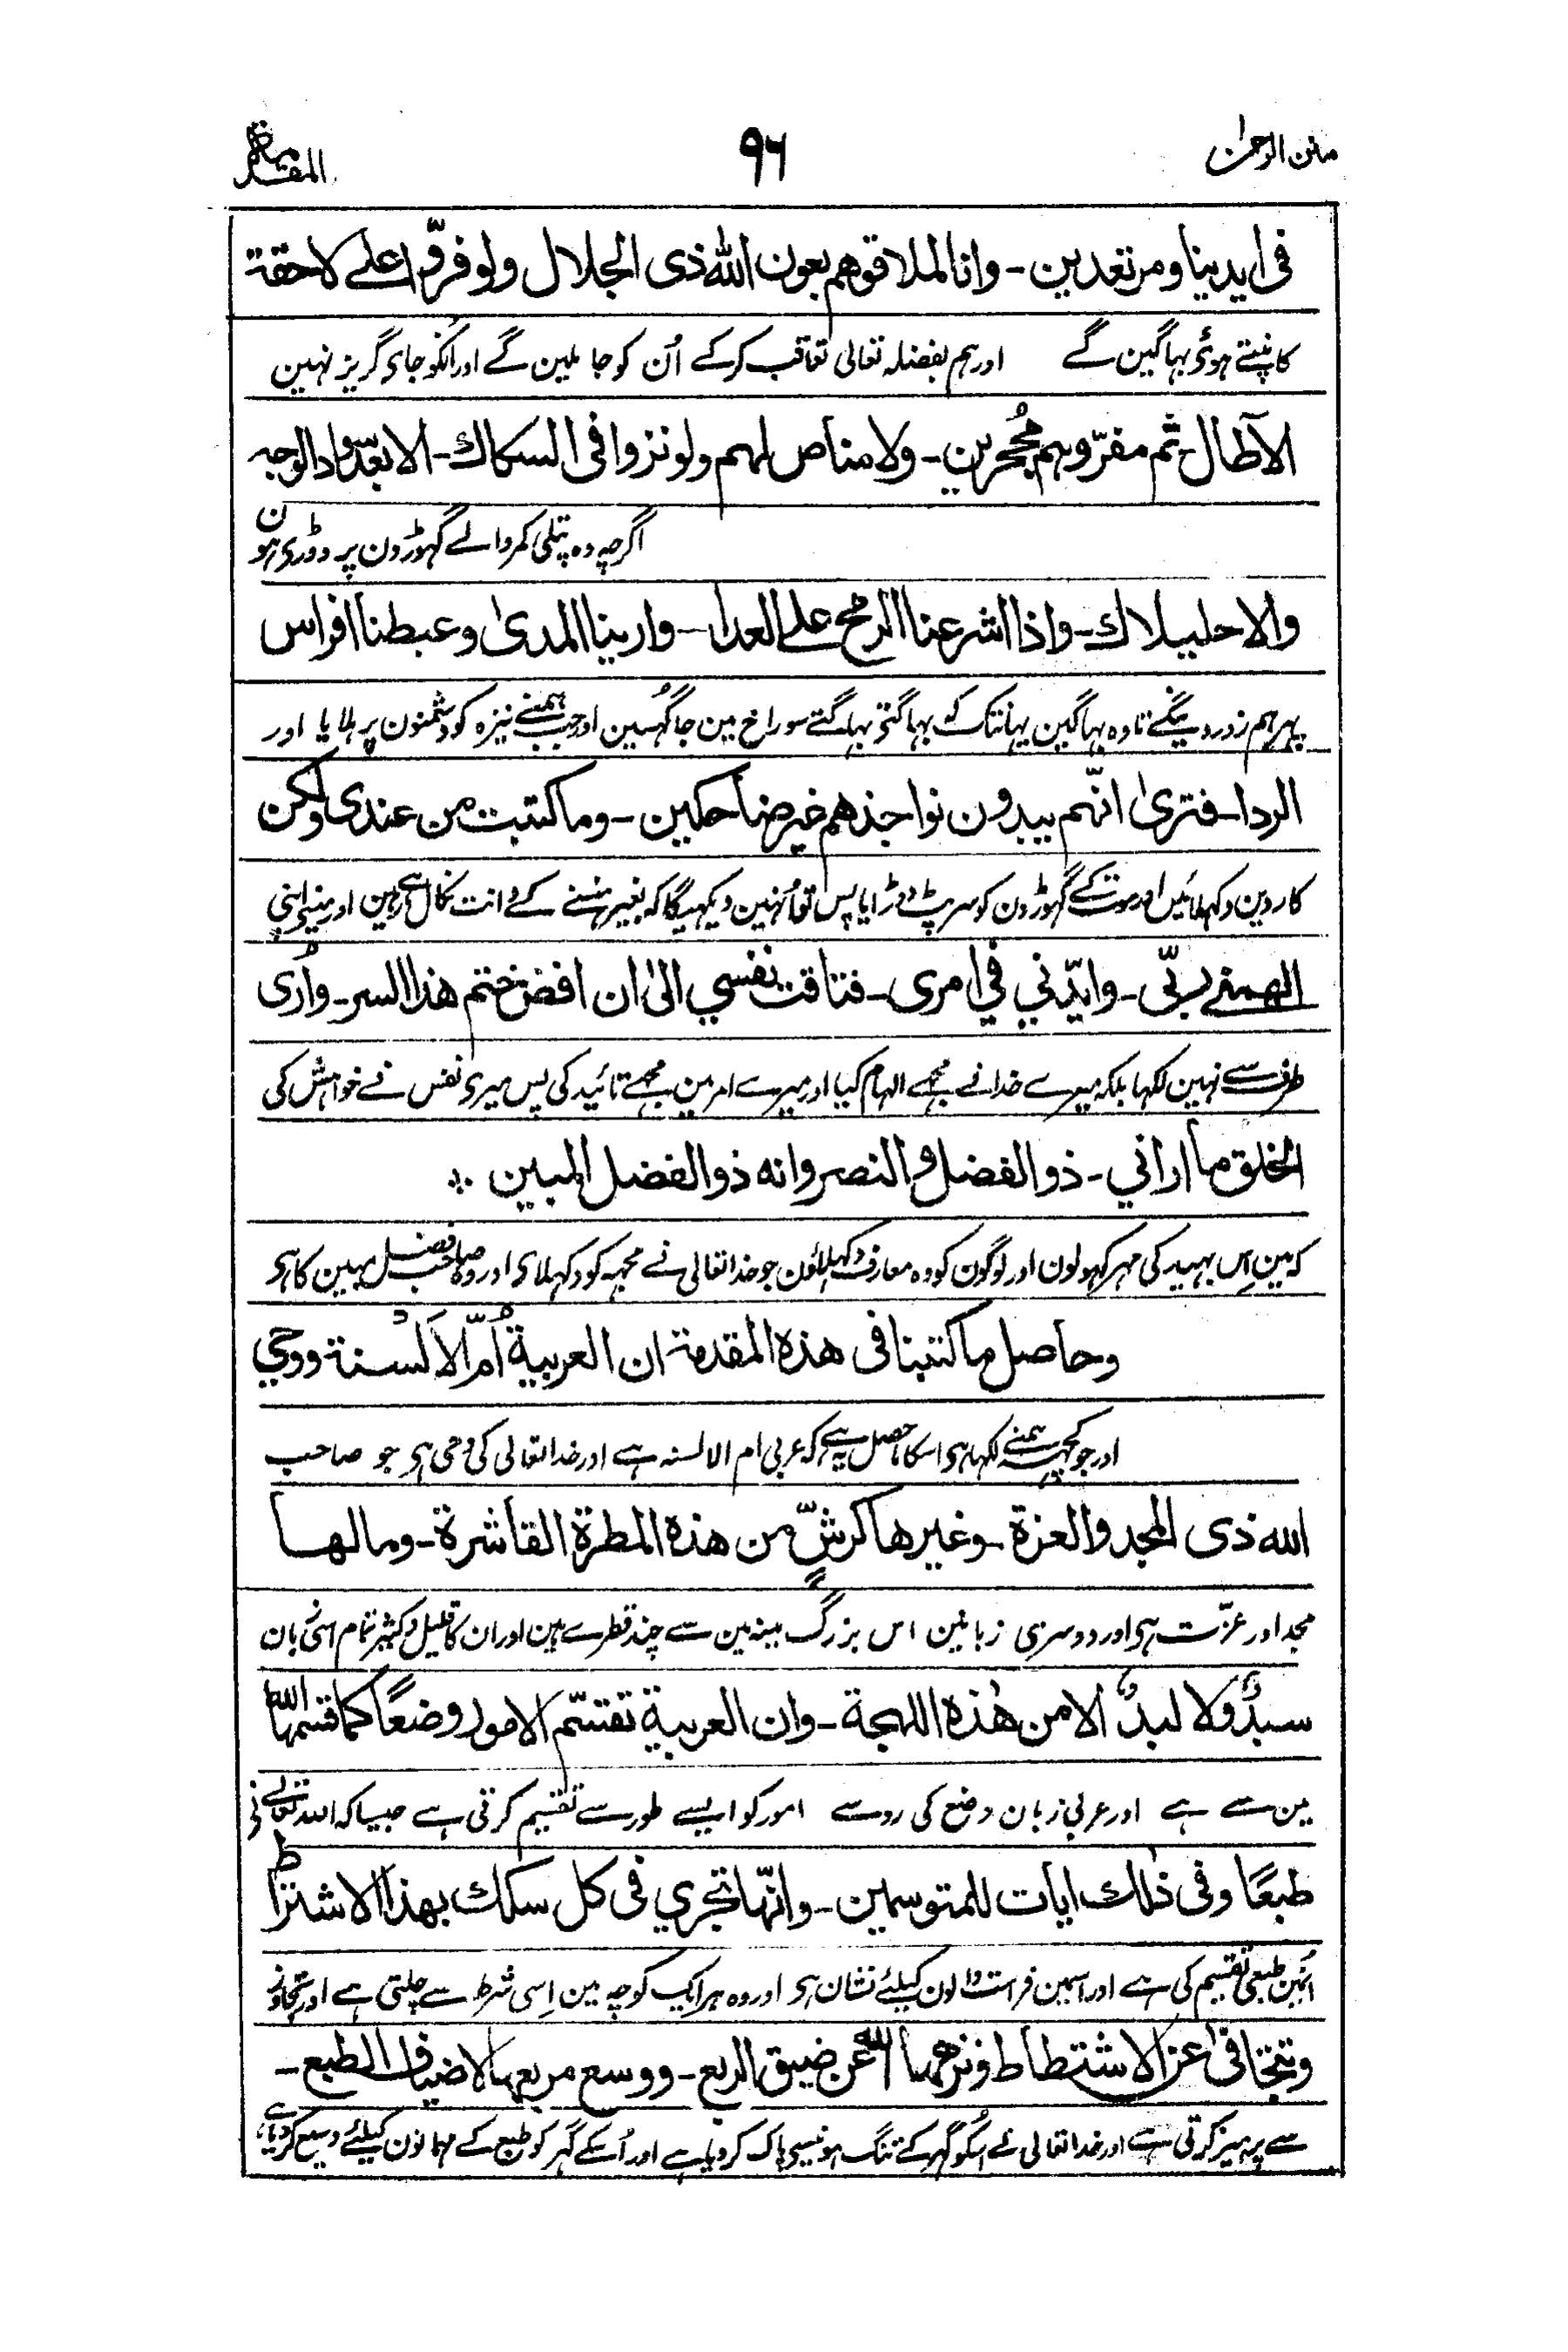 منن الرحمٰن ۹۶ المقدمة
فی ایدینا ومرتعدین - وانا لملاقوهم بعون اللّٰه ذی الجلال ولو فرّوا علی لاحقة
کانپتے ہوئی بہاگین گے اور ہم بفضلہ تعالی تعاقب کرکے اُن کو جا ملین گے اور انکو جای گریز نہین
الآطال - ثم مفرّوہم مجحرین - ولا مناص لہم ولو نزوا فی السکاک - الا بعد
اگرچہ وہ پتلی کمر والے گہوڑون پر دوڑی ہون
والاحلیلاك - واذا اشرعنا الرمح علی العدا - وارینا المدیٰ وعبطنا افراس
پہر ہم زور دینگے تا وہ بہاگین یہانتک کہ بہاگتے بہاگتے سوراخ مین جا گہُسین اور جب ہمنے نیزہ کو دشمنون پر ہلایا اور
الردا - فتریٰ انّہم یبدون نواجذهم غیر ضاحکین - وما کتبت من عندی ولکن
کاردین دکہلائیں اور موت کے گہوڑون کو سرپٹ دوڑایا پس تو اُنہین دیکہیگا کہ بغیر ہنسنے کے دانت نکال رہے ہین اور مینے اپنی
الهمنی ربّی - وایّدنی فی امری - فتاقت نفسی الیٰ ان افض ختم هذا السر - واُری
طرف سے نہین لکہا بلکہ میرے خدا نے مجہے الہام کیا اور میرے امر مین مجہے تائید کی پس میری نفس نے خواہش کی
الخلق ما ارانی - ذو الفضل والنصر وانه ذو الفضل المبین
کہ مین اِس بہید کی مہر کہولون اور لوگون کو وہ معارف دکہلاؤن جو خدا تعالی نے مجہہ کو دکہلای اور وہ صاحب فضل مبین کا ہی
وحاصل ما کتبنا فی هذہ المقدمة ان العربیة اُمّ الاَلسُنة ووحی
اور جو کچہہ ہمنے لکہا ہی اسکا حاصل یہ ہے کہ عربی ام الالسنہ ہے اور خدا تعالی کی وحی ہی جو صاحب
اللّٰه ذی المجد والعزة - وغیرها کرشّ من هذہ المطرة القاشرة - وما لها
مجد اور عزّت ہی اور دوسری زبانین اس بزرگ مینہ مین سے چند قطرے ہین اور ان کا قلیل و کثیر تمام اسی زبان
سبدٌ ولا لبدٌ الا من هٰذہ اللهجة - وان العربیة تقسّم الامور وضعًا کما قسمها اللّٰه
مین سے ہے اور عربی زبان وضع کی رو سے امور کو ایسے طور سے تقسیم کرتی ہے جیسا کہ اللہ تعالے نی
طبعًا وفی ذٰلك ایات للمتوسمین - وانّها تجری فی کل سکك بهذا الاشتراط
اُنہین طبعی تقسیم کی ہے اور اسمین فراست والون کیلئے نشان ہی اور وہ ہر ایک کوچہ مین اِسی شرط سے چلتی ہے اور تجاوز
وتتجافی عن الاشتطاط ونزهها اللّٰه عن ضیق الربع - ووسع مربعها لاضیاف الطبع -
سے پرہیز کرتی ہے اور خدا تعالی نے اسکو گہر کے تنگ ہونیسی پاک کر دیا ہے اور اُسکے گہر کو طبع کے مہمانون کیلئے وسیع کر دیا ہے